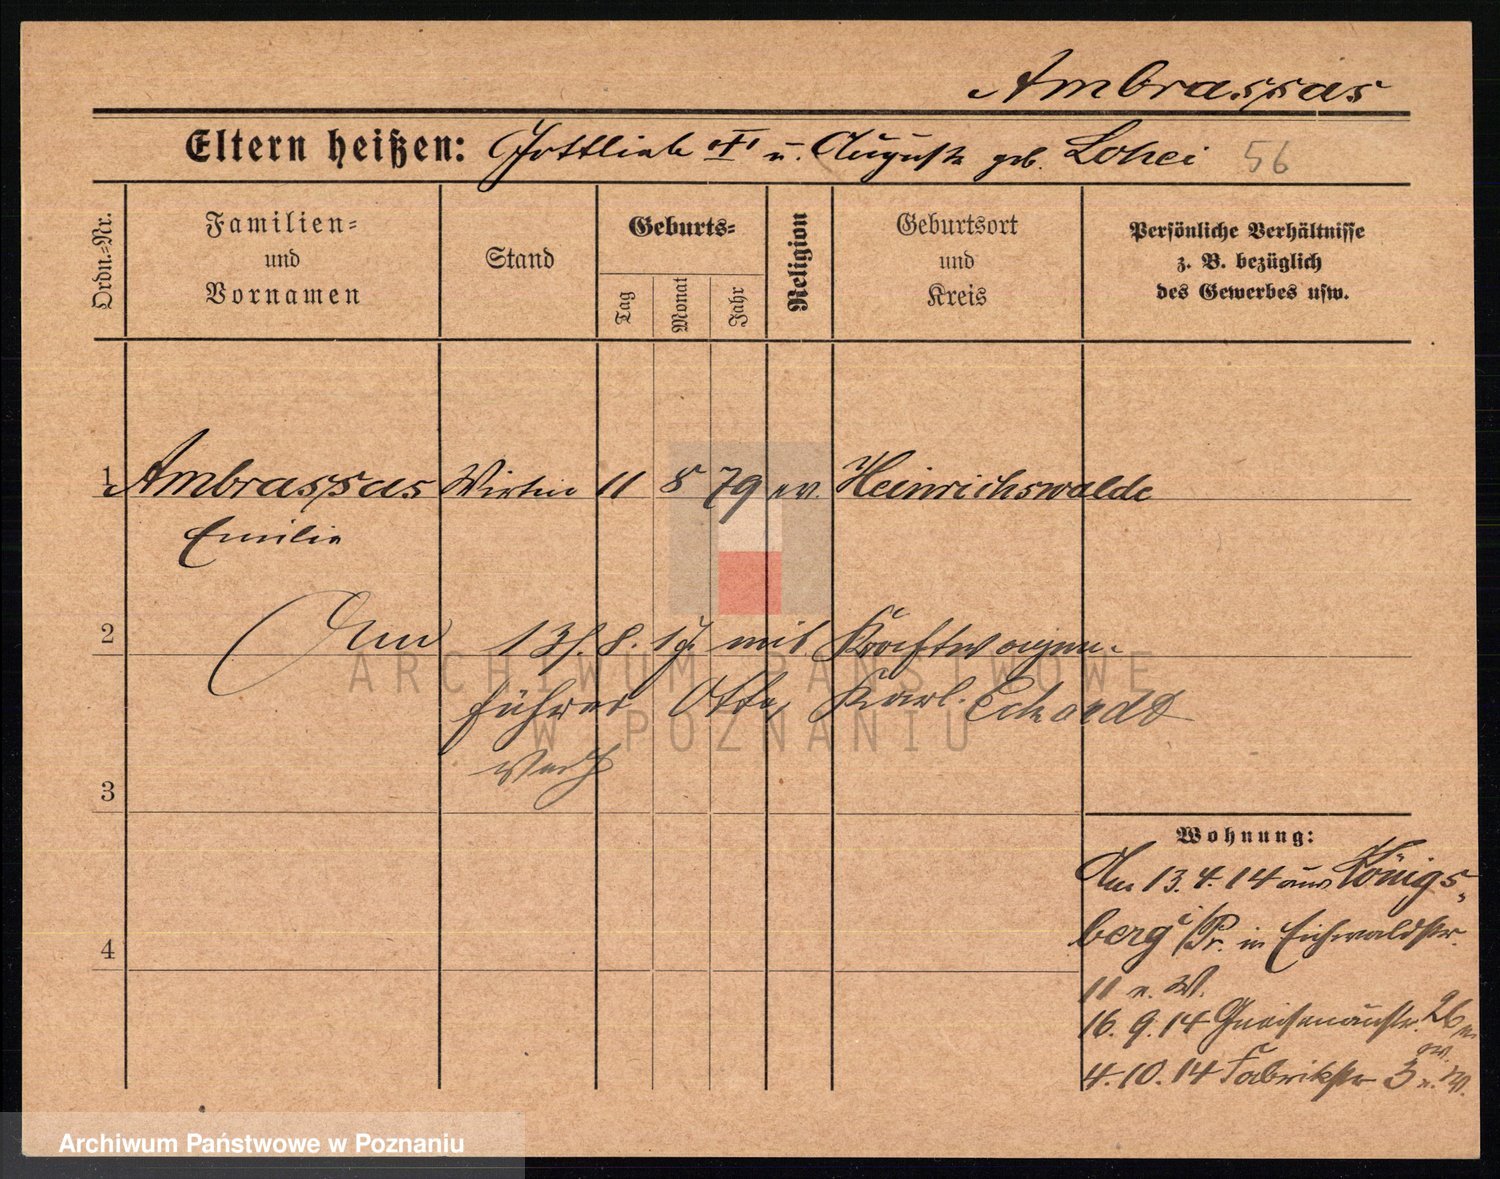 Ambrassas
Eltern heißen: Gottlieb "†" u. Auguste geb. Lohei 56
Ordn.-Nr.
Familien-
und
Vornamen
Stand
Geburts-
Tag
Monat
Jahr
Religion
Geburtsort
und
Kreis
Persönliche Verhältnisse
z. B. bezüglich
des Gewerbes usw.
1 Ambrassas Wirtin 11 8 79 ev. Heinrichswalde
Emilie
2 mit Kraftwagen-
führer Otto, Karl Eckardt
verh
3
Wohnung:
Am 13. 4. 14 aus Königs-
berg i/Pr. in Eichwaldstr.
4
11 n. W.
16. 9. 14 Gneisenaustr. 26
4. 10. 14 Fabrikstr 3 n. W.
ARCHIWUM PAŃSTWOWE
W POZNANIU
Archiwum Państwowe w Poznaniu